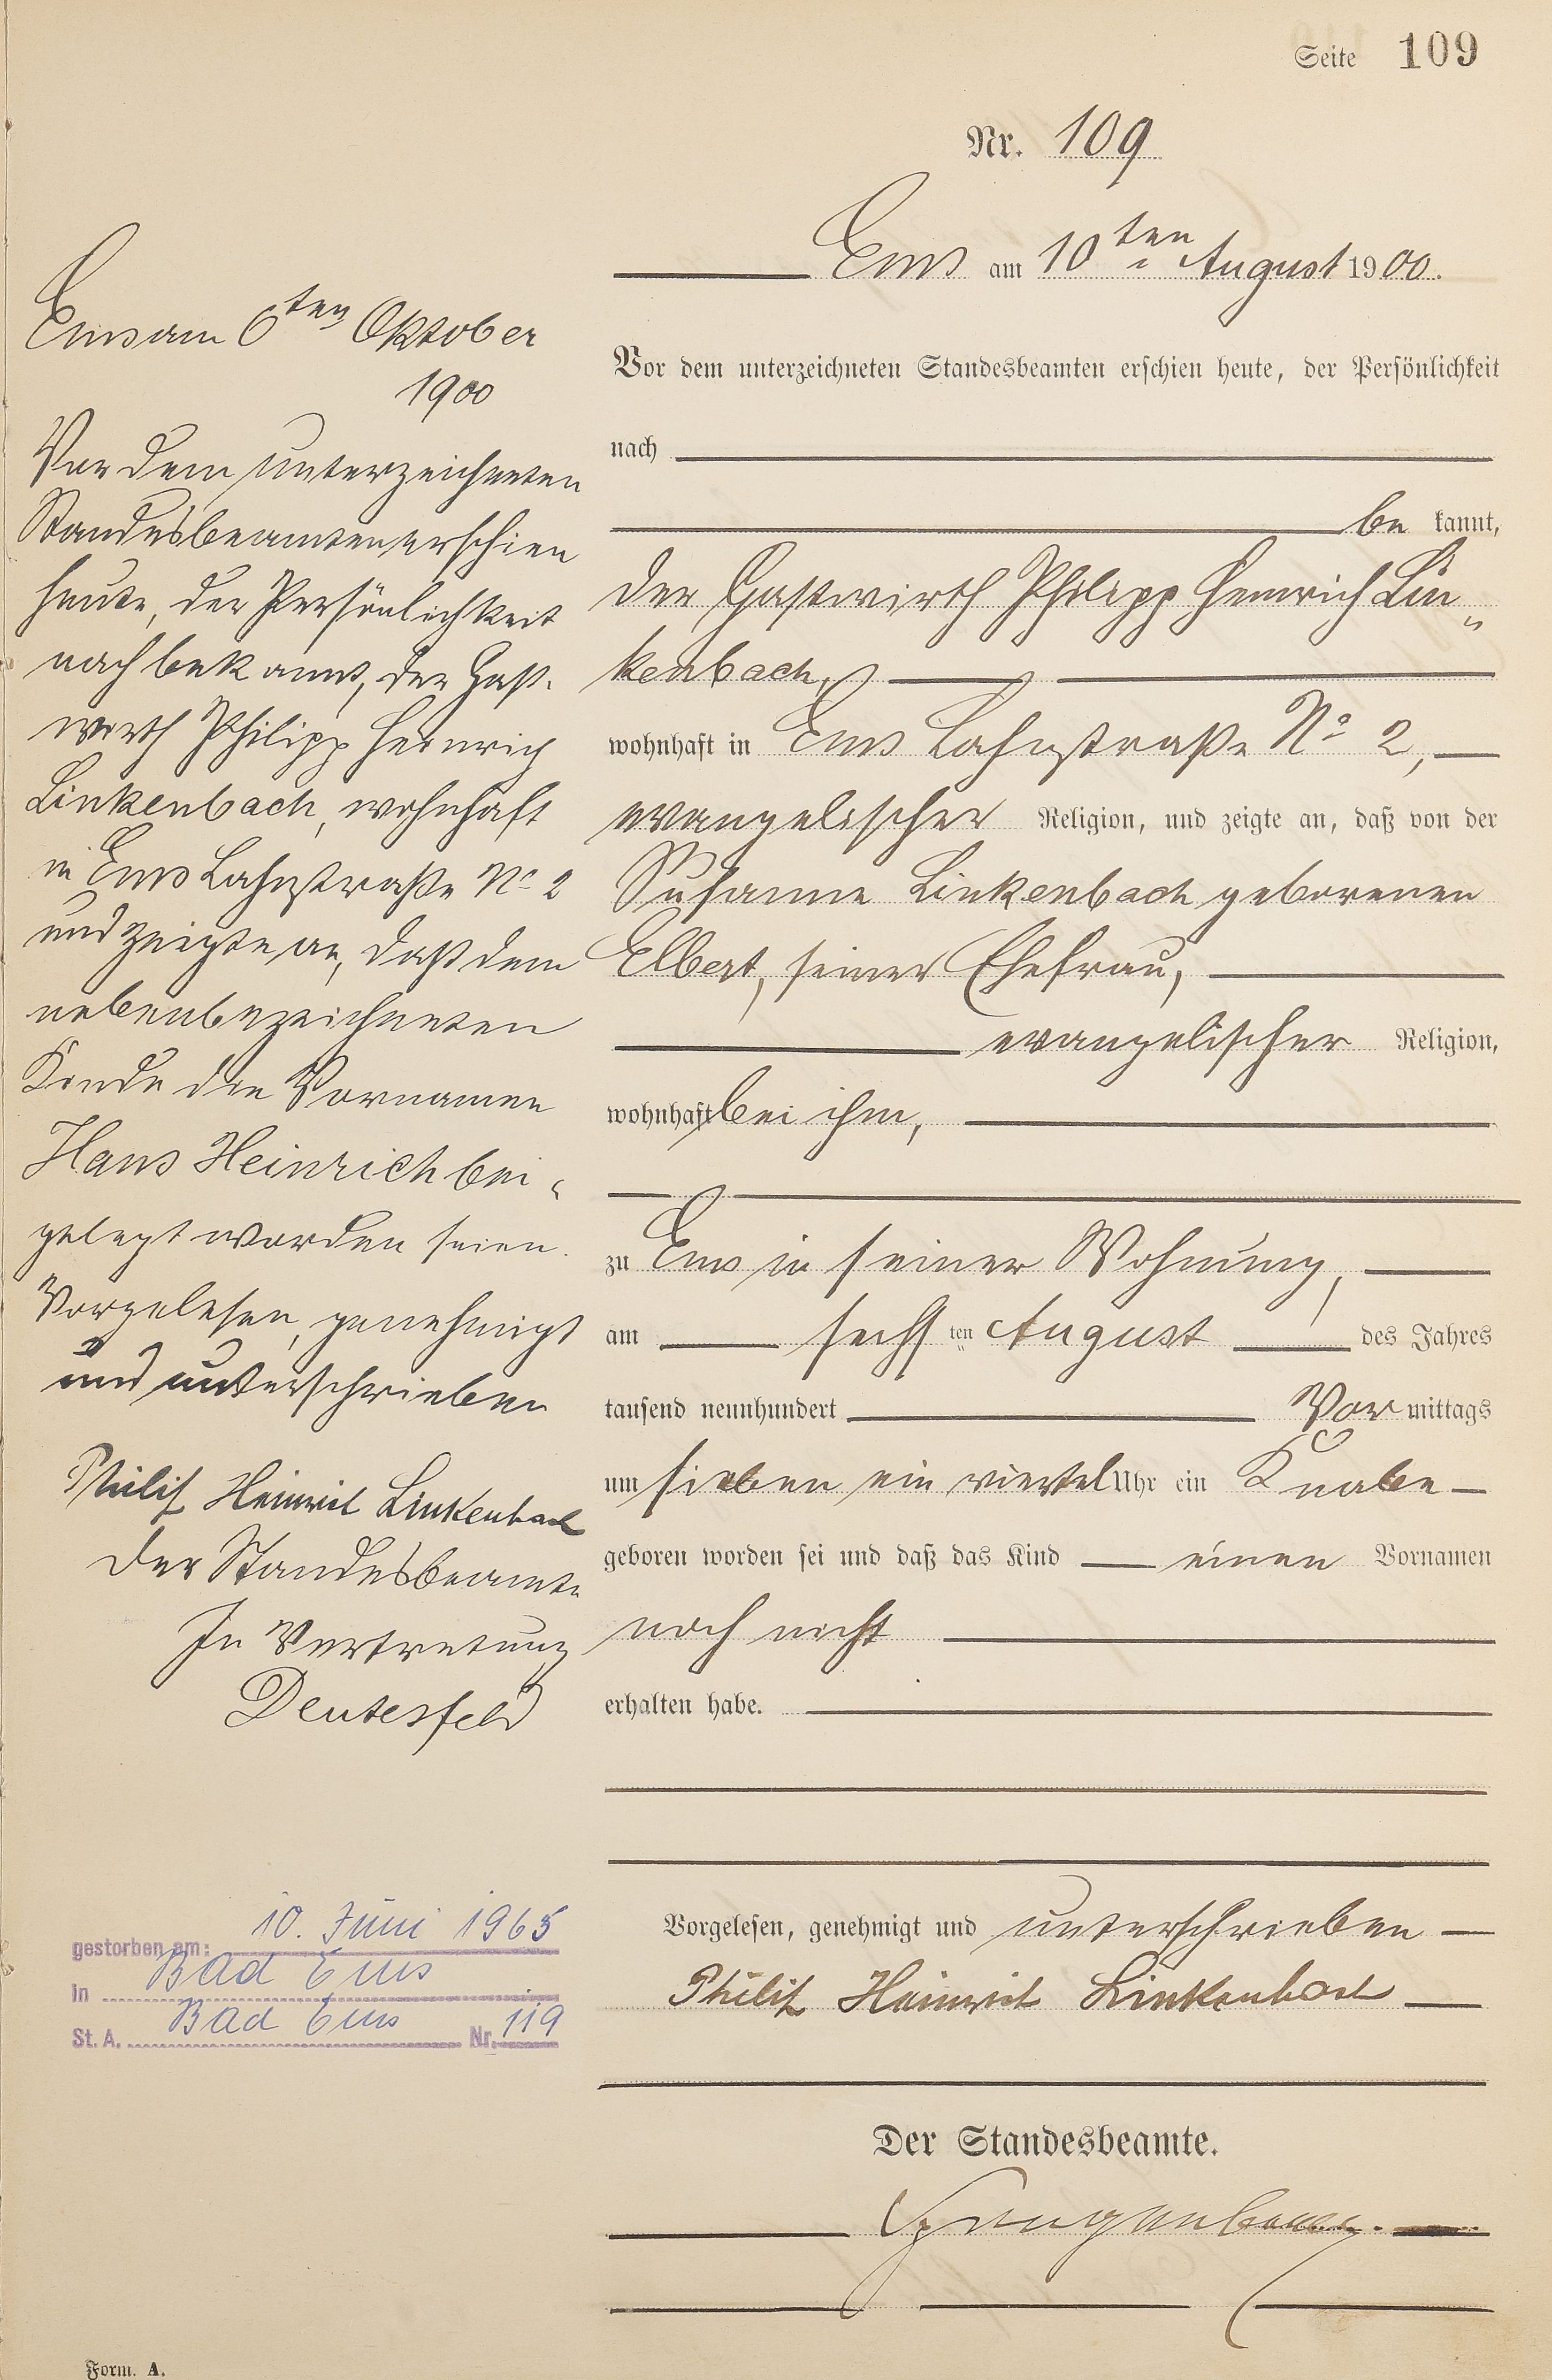 Seite 109
Nr. 109
Ems am 10ten August 1900.
Vor dem unterzeichneten Standesbeamten erschien heute, der Persönlichkeit
nach
be kannt,
der Gastwirth Philipp Heinrich Lin„
kenbach,
wohnhaft in Ems Lahnstraße No 2,
evangelischer Religion, und zeigte an, daß von der
Susanne Linkenbach geborenen
Elbert, seiner Ehefrau,
evangelischer Religion,
wohnhaft bei ihm,
zu Ems in seiner Wohnung,
am sechsten August des Jahres
tausend neunhundert Vor mittags
um sieben ein viertel Uhr ein Knabe
geboren worden sei und daß das Kind einen Vornamen
noch nicht
erhalten habe.
Vorgelesen, genehmigt und unterschrieben
Philip Heinrich Linkenbach
Der Standesbeamte.
Ems am 6ten Oktober
1900
Vor dem unterzeichneten
Standesbeamten erschien
heute, der Persönlichkeit
nach bekannt, der Gast-
wirth Philipp Heinrich
Linkenbach, wohnhaft
in Ems Lahnstraße No 2
und zeigte an, daß dem
nebenbezeichneten
Kinde die Vornamen
Hans Heinrich bei„
gelegt worden seien.
Vorgelesen, genehmigt
und unterschrieben
Philip Heinrich Linkenbach
Der Standesbeamte
In Vertretung
Deutesfeld
gestorben am: 10. Juni 1965
In Bad Ems
St. A. Bad Ems Nr. 119
Form. A.